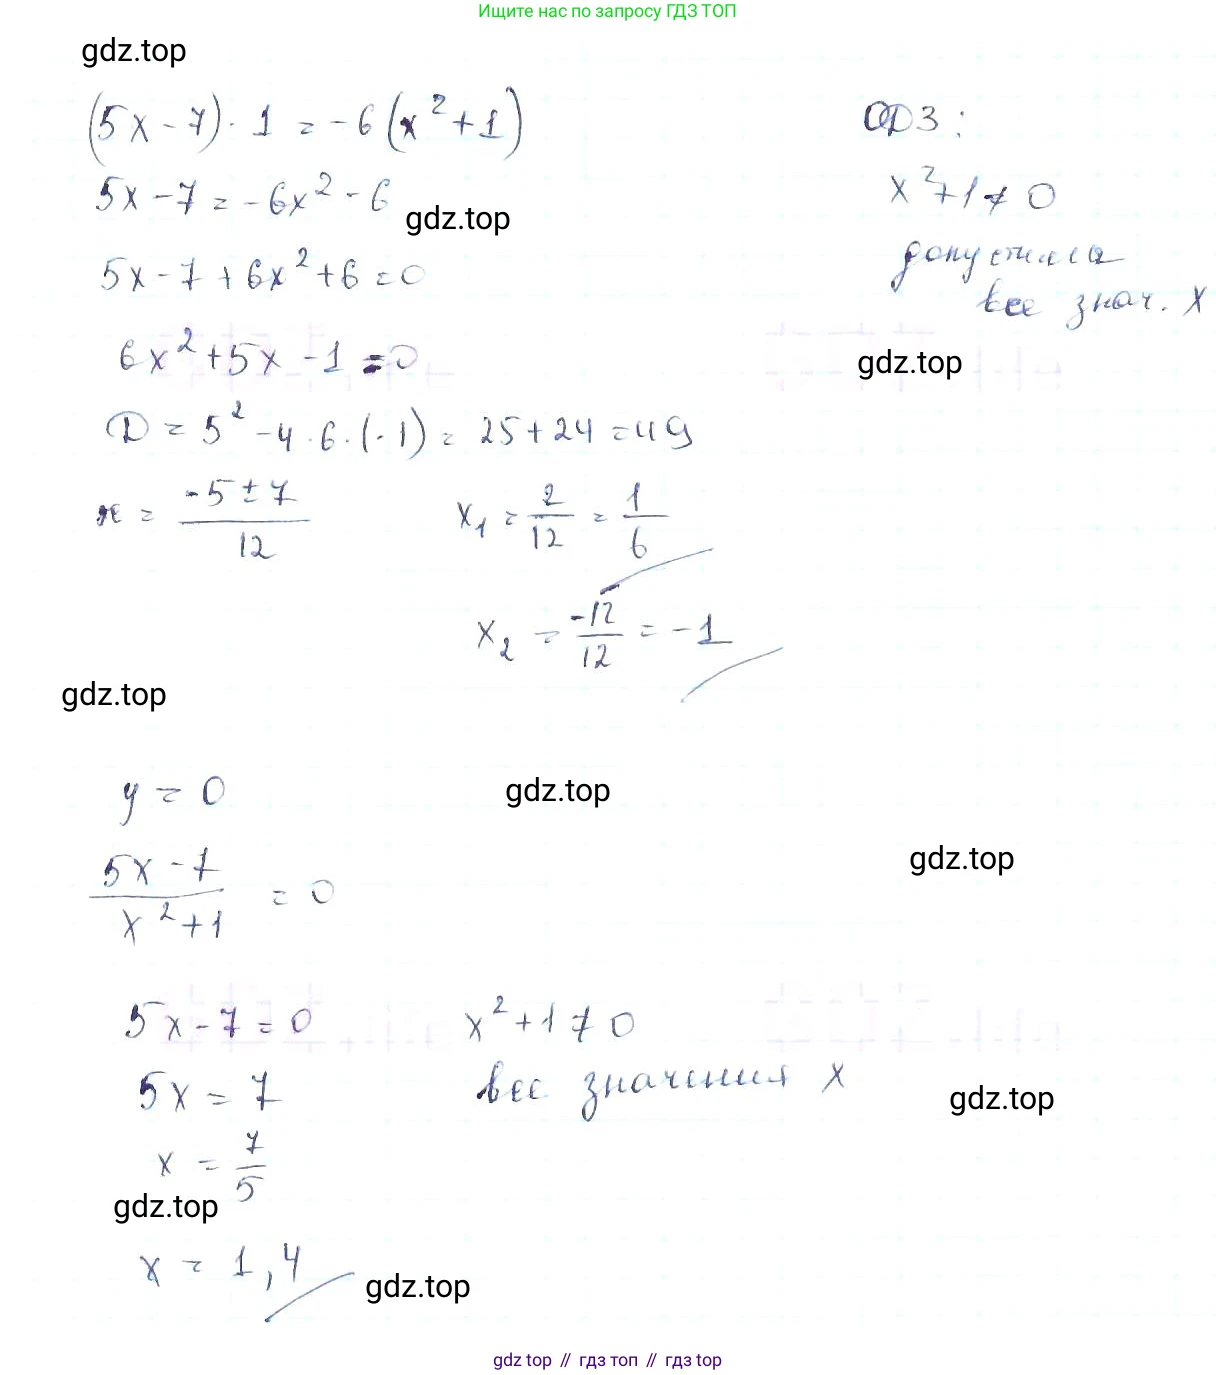 Ищите нас по запросу ГДЗ ТОП
gdz.top
(5x - 7) · 1 = -6 (x² + 1)
ОДЗ:
5x - 7 = -6x² - 6
x² + 1 ≠ 0
gdz.top
5x - 7 + 6x² + 6 = 0
все знач. x
6x² + 5x - 1 = 0
gdz.top
D = 5² - 4 · 6 · (-1) = 25 + 24 = 49
x = (-5 ± 7)/12 x₁ = 2/12 = 1/6
x₂ = -12/12 = -1
gdz.top
y = 0
gdz.top
(5x - 7)/(x² + 1) = 0
gdz.top
5x - 7 = 0 x² + 1 ≠ 0
5x = 7 все значения x
gdz.top
x = 7/5
gdz.top
x = 1,4
gdz.top
gdz top // гдз топ // гдз top